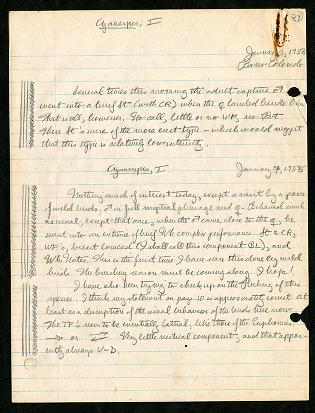 Cyanerpes, I
99
January 5, 1958
Several times this morning the adult captive ♂
went into a brief St (with CR) when the ♀ landed beside him
that way, however, no call, little or no WF, no
there St's were of the more erect type - which would suggest
that this type is relatively low intensity.
Cyanerpes, I
January 7, 1958
Nothing much of interest today, except a visit by a pair
of wild birds. ♂ in full nuptial plumage and ♀. Behaved much
as usual, except that once, when the ♂ came close to the ♀, he
went into an extreme of brief complex performance. St & CR,
WF's, breast lowered (I shall call this component BL), and
Wh Notes. This is the first time I have seen this done by wild
birds. The breeding season must be coming along. I hope!
I have also been trying to check up on the flicking of this
species. I think my statement on page 10 is approximately correct at
least as a description of the usual behavior of the birds here now.
The TF's seem to be essentially lateral, like those of the Euphonias.
→ or ⇄ Very little vertical component, and that appar-
ently always U-D.